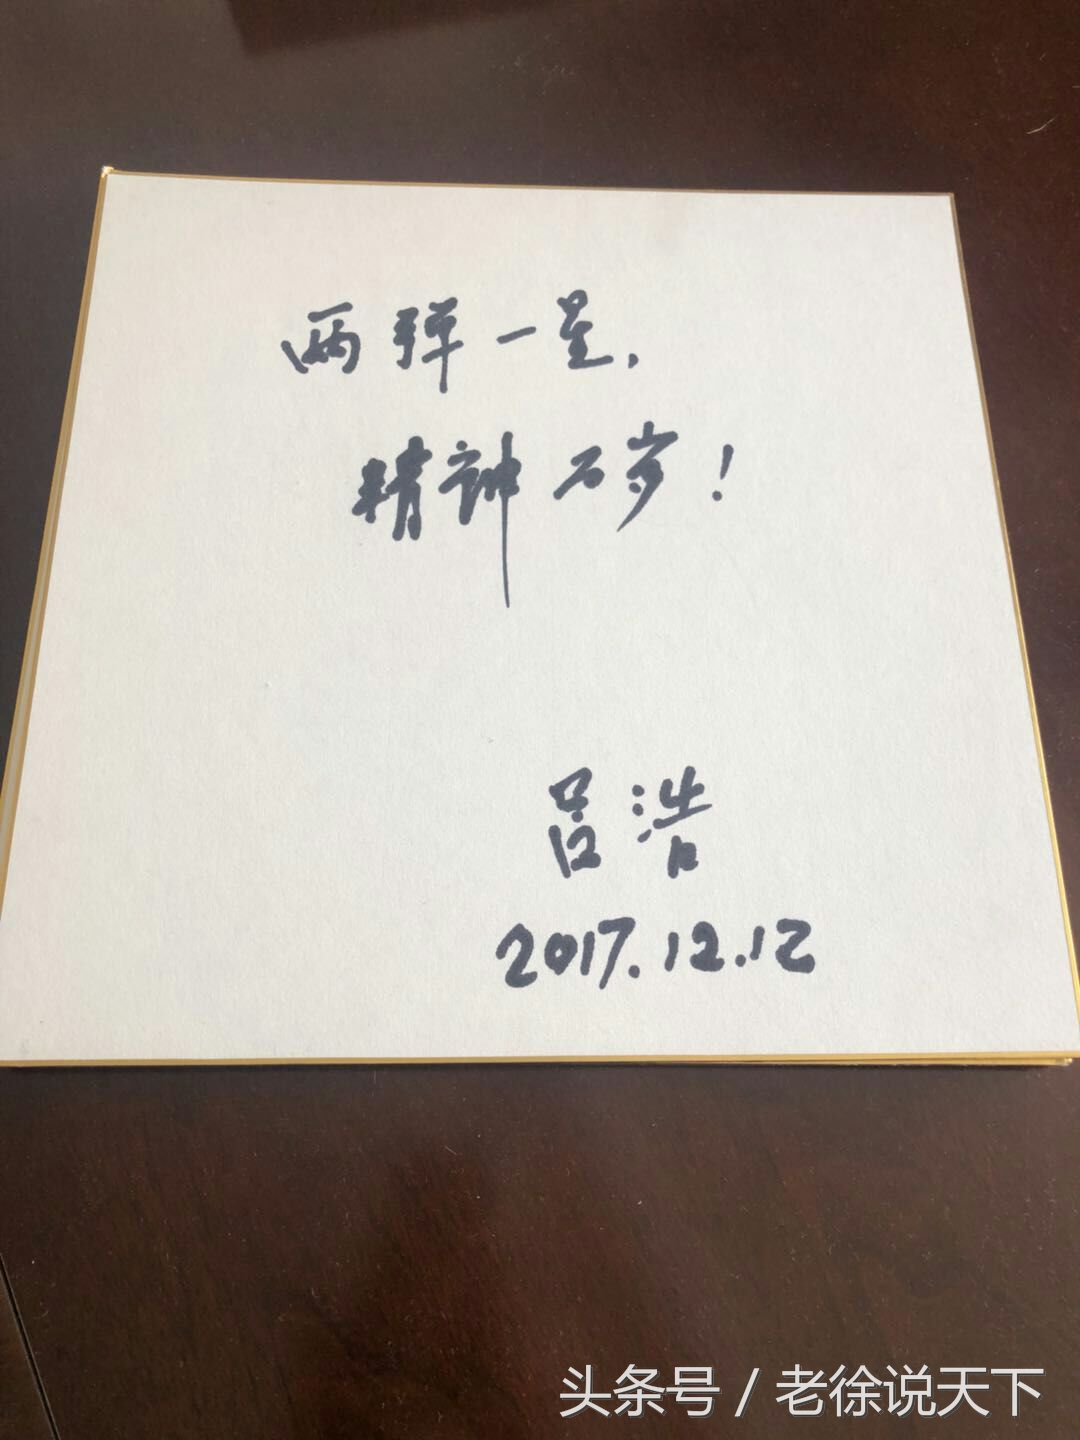 两弹一星，
精神万岁！
吕浩
2017.12.12
头条号 / 老徐说天下